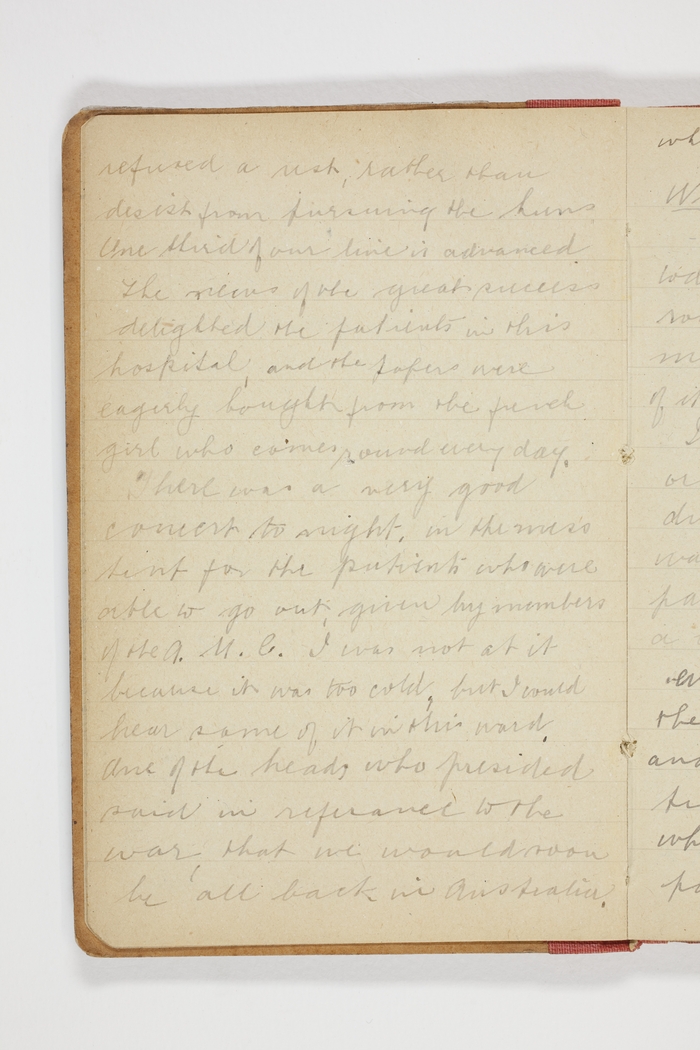 refused a rest, rather than
desist from pursuing the huns
One third of our line is advanced
The news of the great success
delighted the patients in this
hospital, and the papers were
eagerly bought from the french
girl who comes round every day.
There was a very good
concert to night, in the mess
tent for the patients who were
able to go out, given by members
of the A. M. C. I was not at it
because it was too cold, but I would
hear some of it in this ward.
One of the heads who presided
said in referance to the
war, that we would soon
be all back in Australia.
wh
of it
or
wa
pa
a
the
and
wh